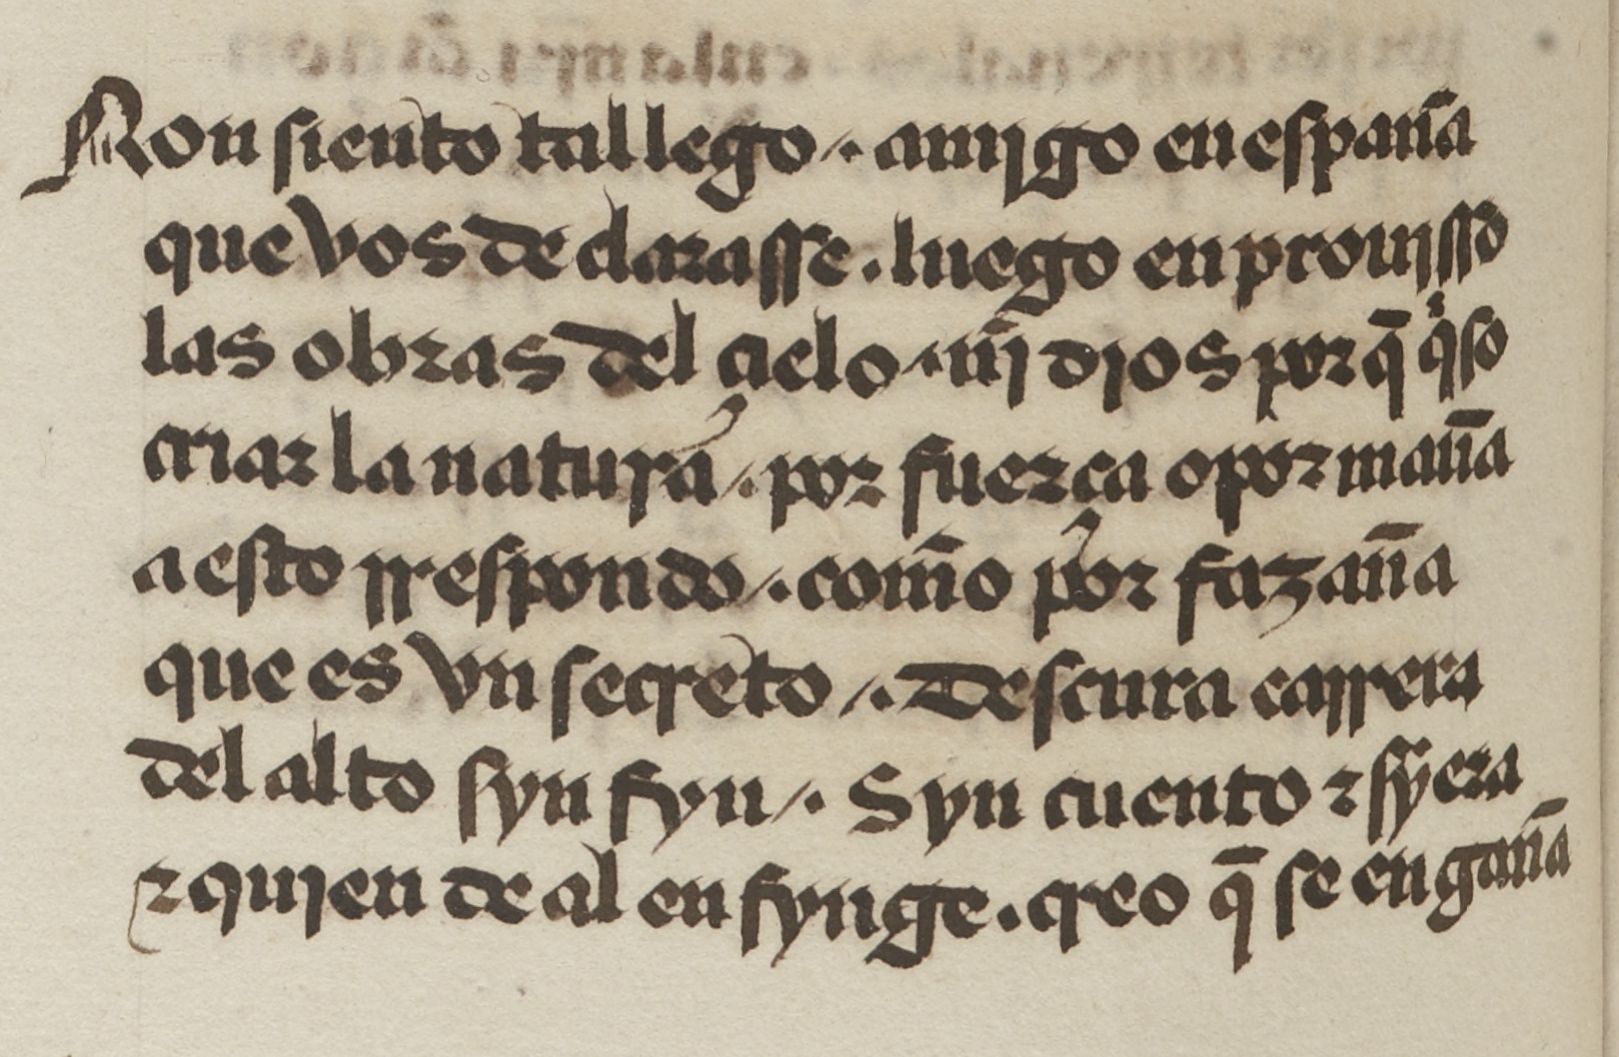 Non siento tal lego . amijgo en españa
que vos declarasse . luego en prouijsso
las obras del cielo . nĩj dios por q̃ qⁱso
criar la natura . por fuerça o por maña
a esto rrespondo . com̃o por fazaña
que es vn secreto . Descura carrera
del alto syn fyn . Syn cuento ⁊ syera
⁊ quien de al en fynge . creo q̃ se engaña